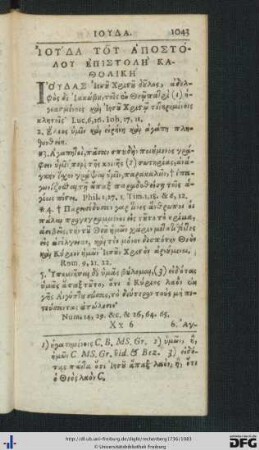 ΙΟΥΔΑ. 1043
ἸΟΥΔΑ ΤΟΥ ἈΠΟΣΤΌ-
ΛΟΥ ἘΠΙΣΤΟΛΗ ΚΑ-
ΘΟΛΙΚΉ
ἸΟΥΔΑΣ Ἰησοῦ Χριστοῦ δοῦλος, ἀδελ-
φὸς δὲ Ἰακώβου, τοῖς ἐν Θεῷ πατρὶ (1)
καὶ Ἰησοῦ Χριστῷ τετηρημένοις
κλητοῖς Luc. 6, 16. Joh. 17, 11.
2. ἔλεος ὑμῖν καὶ εἰρήνη καὶ ἀγάπη πλη-
θυνθείη.
3. Ἀγαπητοὶ, πᾶσαν σπουδὴν ποιούμενος γρά-
φειν ὑμῖν περὶ τῆς κοινῆς (2) σωτηρίας, ἀνάγ-
κην ἔσχον γράψαι ὑμῖν, παρακαλῶν ἐπαγω-
νίζεσθαι τῇ ἅπαξ παραδοθείσῃ τοῖς ἁ-
γίοις πίστει. Phil. 1, 27. 1 Tim. 1, 18. & 6, 12.
4. † Παρεισέδυσαν γάρ τινες ἄνθρωποι οἱ
πάλαι προγεγραμμένοι εἰς τοῦτο τὸ κρίμα,
ἀσεβεῖς, τὴν τοῦ Θεοῦ ἡμῶν χάριν μετατιθέντες
εἰς ἀσέλγειαν, καὶ τὸν μόνον δεσπότην Θεὸν
καὶ Κύριον ἡμῶν Ἰησοῦν Χριστὸν ἀρνούμενοι.
Rom. 9, 21. 22.
5. Ὑπομνῆσαι δὲ ὑμᾶς βούλομαι, (3) εἰδότας
ὑμᾶς ἅπαξ τοῦτο, ὅτι ὁ Κύριος λαὸν ἐκ
γῆς Αἰγύπτου σώσας, τὸ δεύτερον τοὺς μὴ πι-
στεύσαντας ἀπώλεσεν
Num. 14, 29. &c. & 26, 64. 65.
X x 6 6. Ἀγ-
1) ἠγαπημένοις C, B, MS. Gr. 2) ὑμῶν, ἢ,
ἡμῶν C. MS. Gr. Sid. & Bez. 3)
Θεὸς λαὸν C,
http://dl.ub.uni-freiburg.de/diglit/reichenberg1736/1085
© Universitätsbibliothek Freiburg
gefördert durch die
DFG